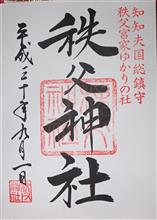 知知夫国総鎮守
秩父宮家ゆかりの社
秩父神社
平成三十年九月一日